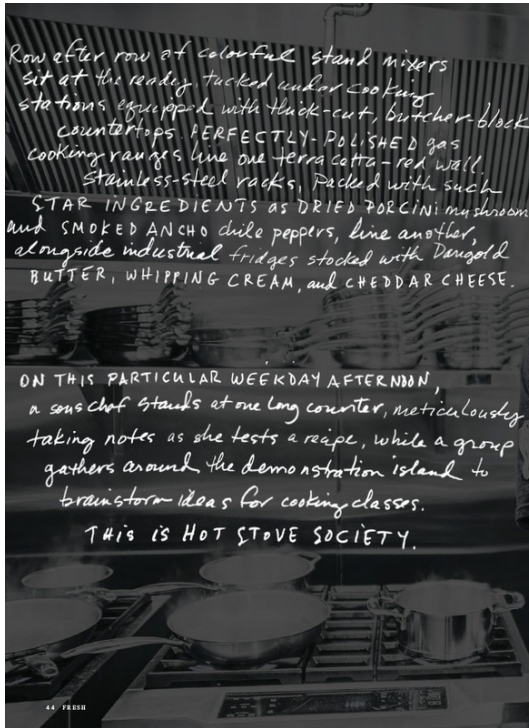 Row after row of colourful stand mixers
sit at the ready, tucked under cooking
stations equipped with thick-cut, butcher-block
countertops. PERFECTLY-POLISHED gas
cooking ranges line one terra cotta-red wall.
Stainless-steel racks, packed with such
STAR INGREDIENTS as DRIED PORCINI mushroom
and SMOKED ANCHO chile peppers, line another,
alongside industrial fridges stocked with Darigold
BUTTER, WHIPPING CREAM, and CHEDDAR CHEESE.
ON THIS PARTICULAR WEEKDAY AFTERNOON,
a sous chef stands at one long counter, meticulously
taking notes as she tests a recipe, while a group
gathers around the demonstration island to
brainstorm ideas for cooking classes.
THIS IS HOT STOVE SOCIETY.
44 FRESH